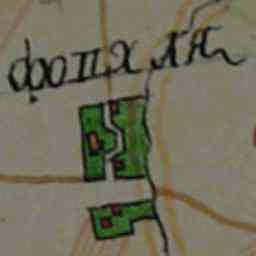 фопхля